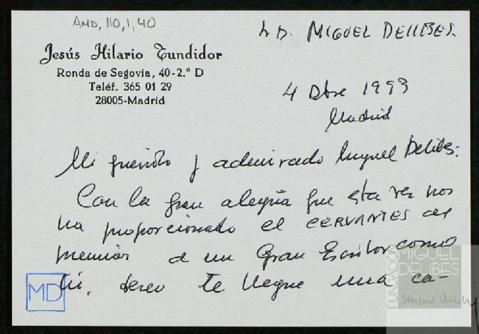 AMD, 110, 1, 40
A D. MIGUEL DELIBES.
Jesús Hilario Tundidor
Ronda de Segovia, 40-2.º D
Teléf. 365 01 29
28005-Madrid
4 Dbre 1993
Madrid
Mi querido y admirado Miguel Delibes:
Con la gran alegría que esta vez nos
ha proporcionado el CERVANTES al
premiar a un Gran Escritor como
tú, deseo te llegue una ca-
MD
FUNDACIÓN
MIGUEL
DELIBES